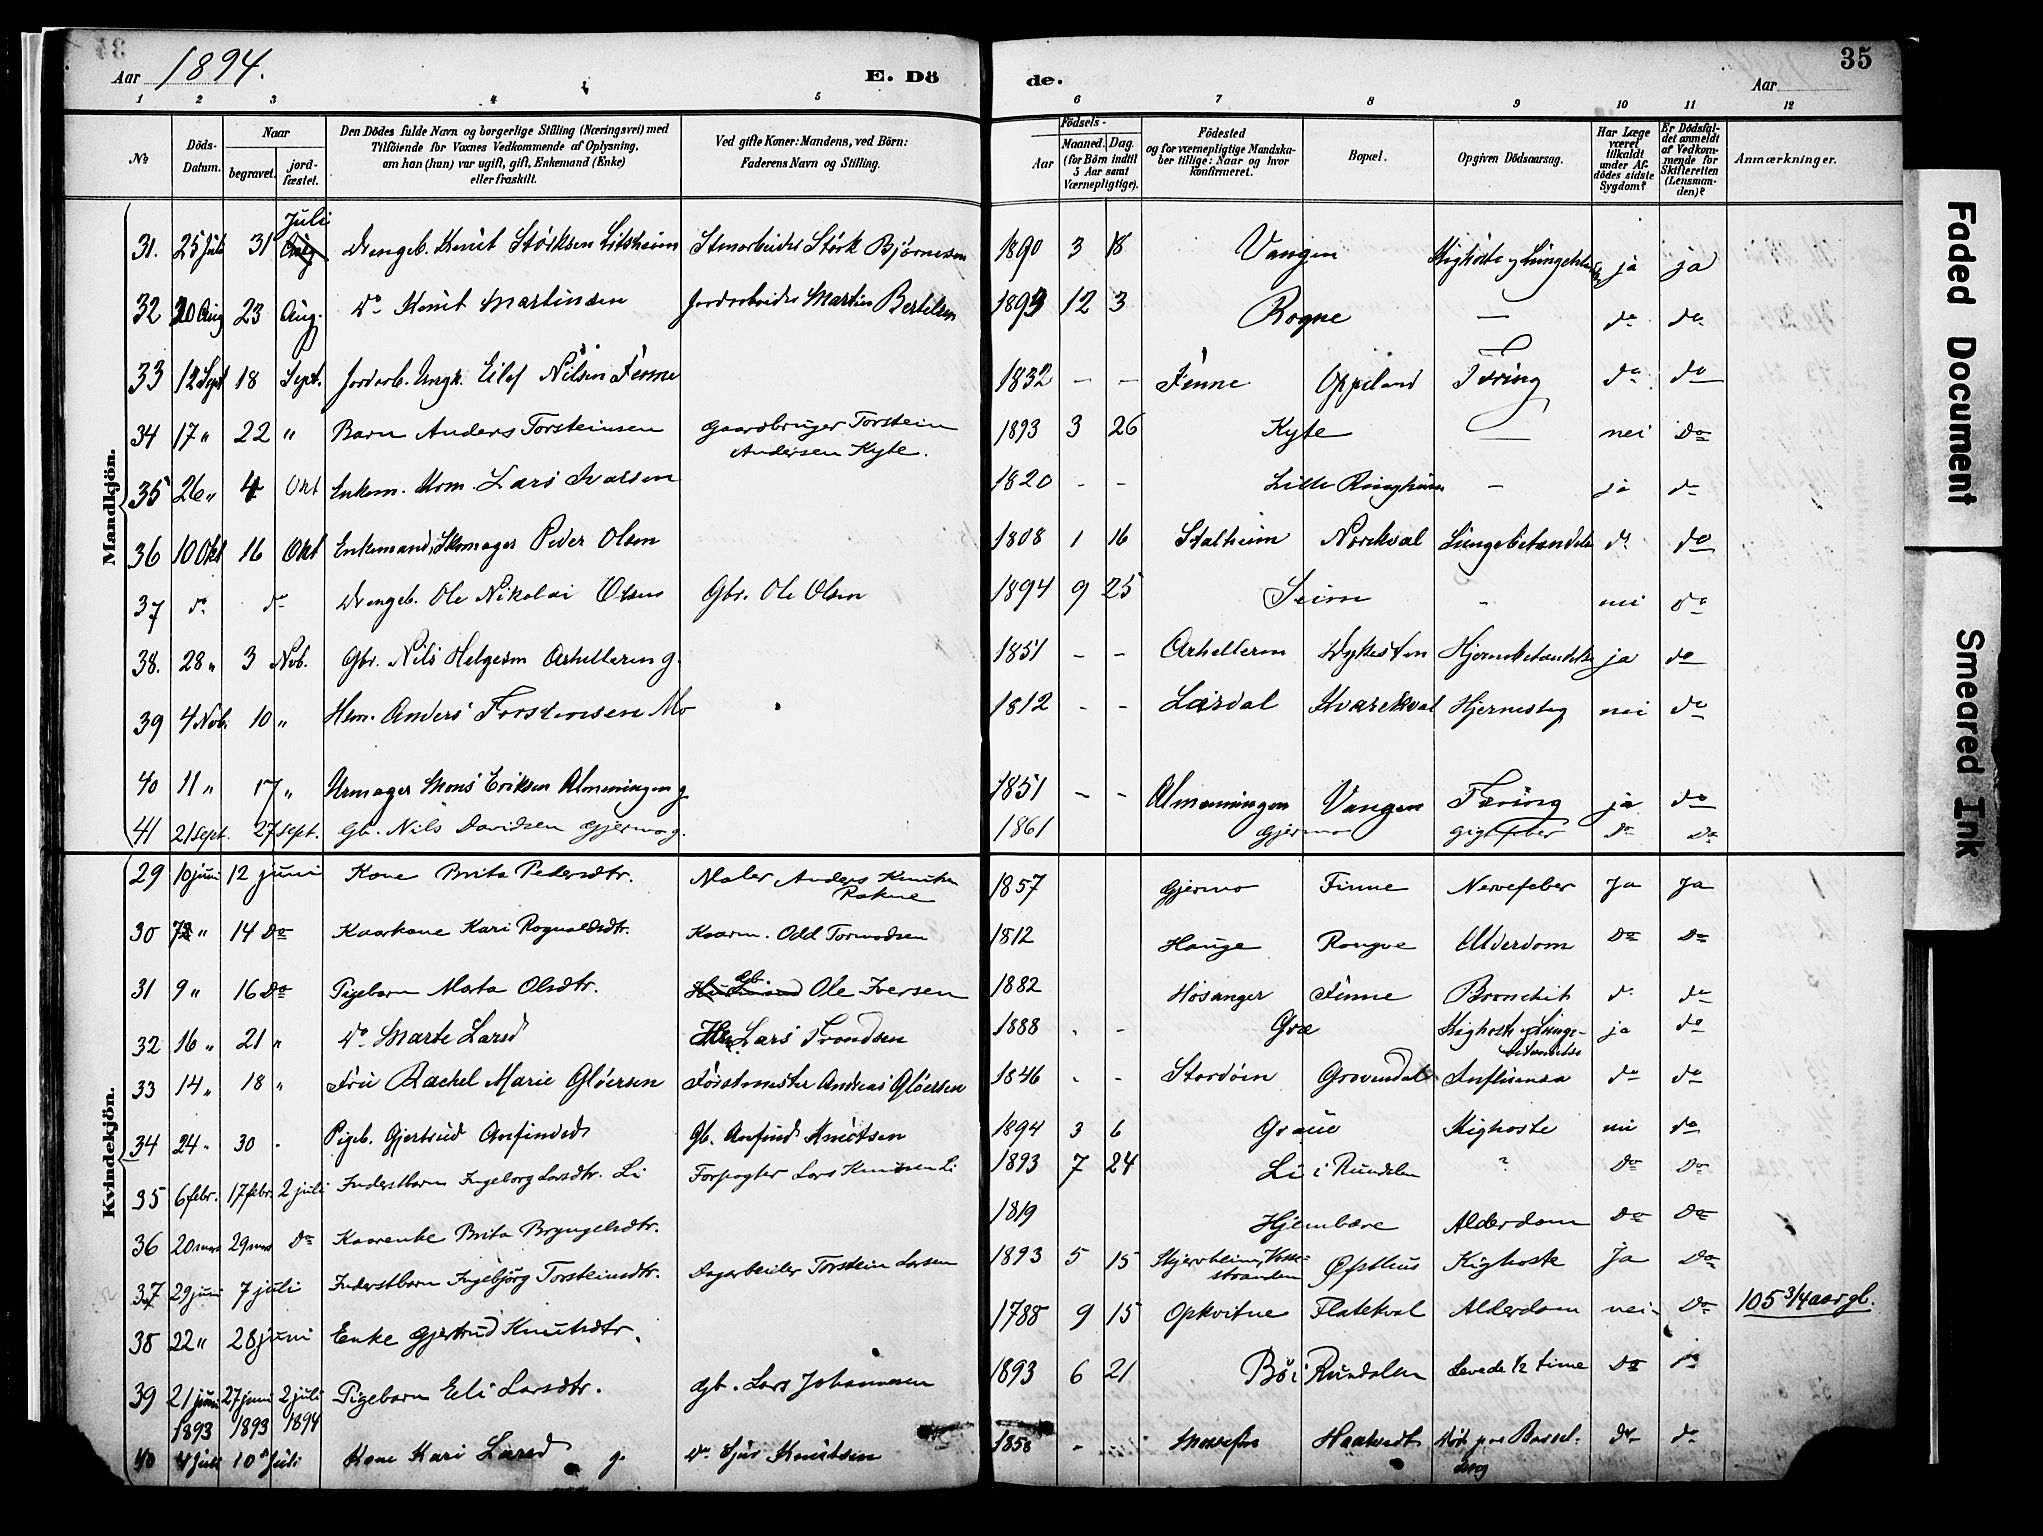 Aar 1894. E. Dö de. Aar 35
1 2 3 4 5 6 7 8 9 10 11 12
№ Döds-Datum. Naar begravet. jord-fæstet.
Den Dödes fulde Navn og borgerlige Stilling (Næringsvei) med
Tilföiende for Voxnes Vedkommende af Oplysning,
om han (hun) var ugift, gift, Enkemand (Enke)
eller fraskilt.
Ved gifte Koner: Mandens, ved Börn:
Faderens Navn og Stilling.
Födsels-
Aar Maaned. Dag.
(for Börn indtil
5 Aar samt
Værnepligtige).
Födested
og for værnepligtige Mandska-
ber tillige: Naar og hvor
konfirmeret.
Bopæl.
Opgiven Dödsaarsag.
Har Læge
været
tilkaldt
under Af-
dödes sidste
Sygdom?
Er Dödsfal-
det anmeldt
af Vedkom-
mende for
Skifteretten
(Lensman-
den)?
Anmærkninger.
Mandkjön.
Juli
31. 25 Juli 31 Aug Drengeb. Knut Størksen Litsheim Stenarbeider Størk Bjørnesen 1890 3 18 Vangen Kighoste og ja ja
32 20 Aug 23 Aug. do Knut Martinsen Jordarbeider Martin Bertelsen 1893 12 3 Rogne — do do
33 12 Sept 18 Sept. Jordarb. Ungk. Eilef Nilsen Finne 1832 - - Finne Oppeland Tæring do do
34 17 " 22 " Barn Anders Torsteinsen Gaardbruger Torstein
Andersen Kyte. 1893 3 26 Kyte — nei Do
35 26 " 4 Okt Enkem. Lars Ivarsen 1820 - - Lille Ringheim - ja do
36 10 Okt 16 Okt Enkemand, Skomager Peder Olsen 1808 1 16 Stalheim Norekval Lungebetændelse do do
37 do do Drengeb. Ole Nikolai Olsen Gbr. Ole Olsen 1894 9 25 Seim - nei do
38. 28 " 3 Nov. Gbr. Nils Helgesen g. 1851 - - Dykesten Hjernebetændelse ja do
39 4 Nov. 10 " Hsm. Anders Torstensen Mo 1812 - - Lærdal Kvarekval Hjerneslag nei do
40 11 " 17 " Urmager Mons Eriksen Almeningen g 1851 - - Almenningen Vangen Tæring ja do
41 21 sept. 27 sept. Gb. Nils Davidsen Gjermo g. 1861 Gjermo Gigtfeber Do Do
Kvindekjön.
29 10 juni 12 juni Kone Brita Pedersdtr. Maler Anders Knutsen
Rokne 1857 Gjermo Finne Nervefeber Ja Ja
30 " 14 Do Kaarkone Kari Rognaldsdtr. Kaarm. Odd Tormodsen 1812 Hauge Rongve Alderdom Do Do
31 9 " 16 Do Pigebarn Marta Olsdtr. Gb. Ole Iversen 1882 Hosanger Finne Bronchit do do
32 16 " 21 " do Marte Larsd Lars Trondsen 1888 - - Græ Kighoste og Lunge-
betændelse ja do
33 14 " 18 " Fru Rachel Marie Gløersen Forstmester Andreas Gløersen 1846 - - Stordøen Grovendal Influensa do do
34 24 " 30 " Pigeb. Gjertrud Anfindsd Gb. Anfind Knutsen 1894 3 6 Graue Kighoste nei do
35 6 febr. 17 febr. 2 juli Inderstbarn Ingeborg Larsdtr. Li Forpagter Lars Knutsen Li 1893 7 24 Li i Rundalen " Do Do
36 20 mars 29 mars Do Kaarenke Brita Bryngelsdtr. 1819 Hjembære Alderdom Do Do
37 29 juni 7 juli Inderstbarn Ingebjørg Torsteinsdtr. Dagarbeider Torstein Larsen 1893 5 15 Skjervheim, Vosse-
stranden Øfsthus Kighoste Ja Do
38 22 " 28 juni Enke Gjertrud Knutsdtr. 1788 9 15 Opkvitne Flatekval Alderdom nei Do 105 3/4 aar gl.
39 21 juni 27 juni 2 juli Pigebarn Eli Larsdtr. Gb. Lars Johannesen 1893 6 21 Bø i Rundalen Levede 1/2 time Do
1893 1893 1894
40 4 Juli 10 Juli Kone Kari Larsd g. do Sjur Knutsen 1858 - Haatvedt Død paa Barsel-
seng do do
Faded Document
Smeared Ink